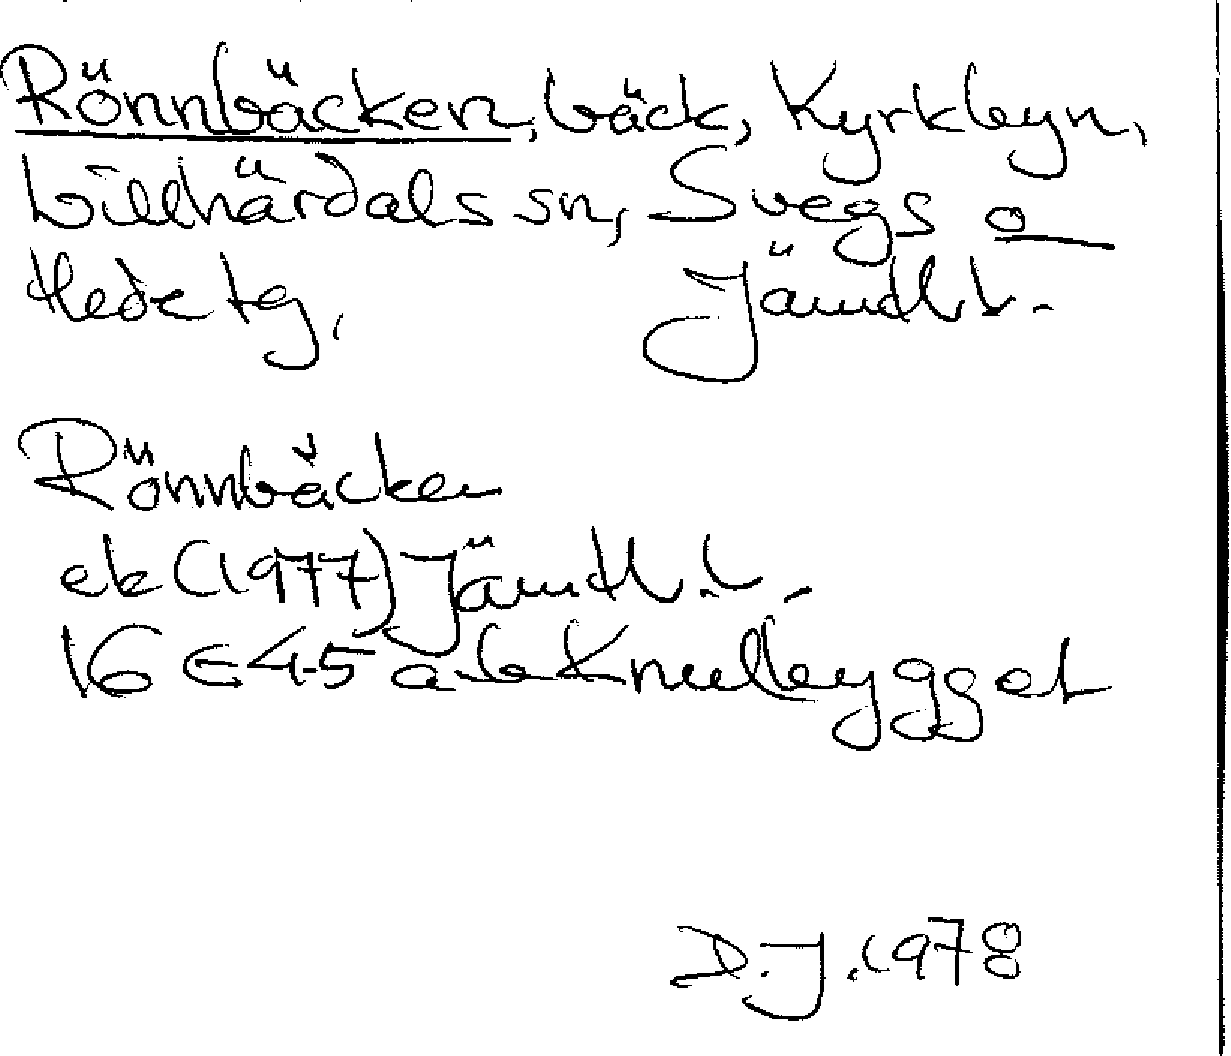 Rönnbäcken, bäck, Kyrkbyn,
Lillhärdals sn, Svegs o
Hede tg, Jämtl. l.
Rönnbäcken
ek (1977) Jämtl. l.
16 E 4-5 a-b Knullbygget
D.J. 1978